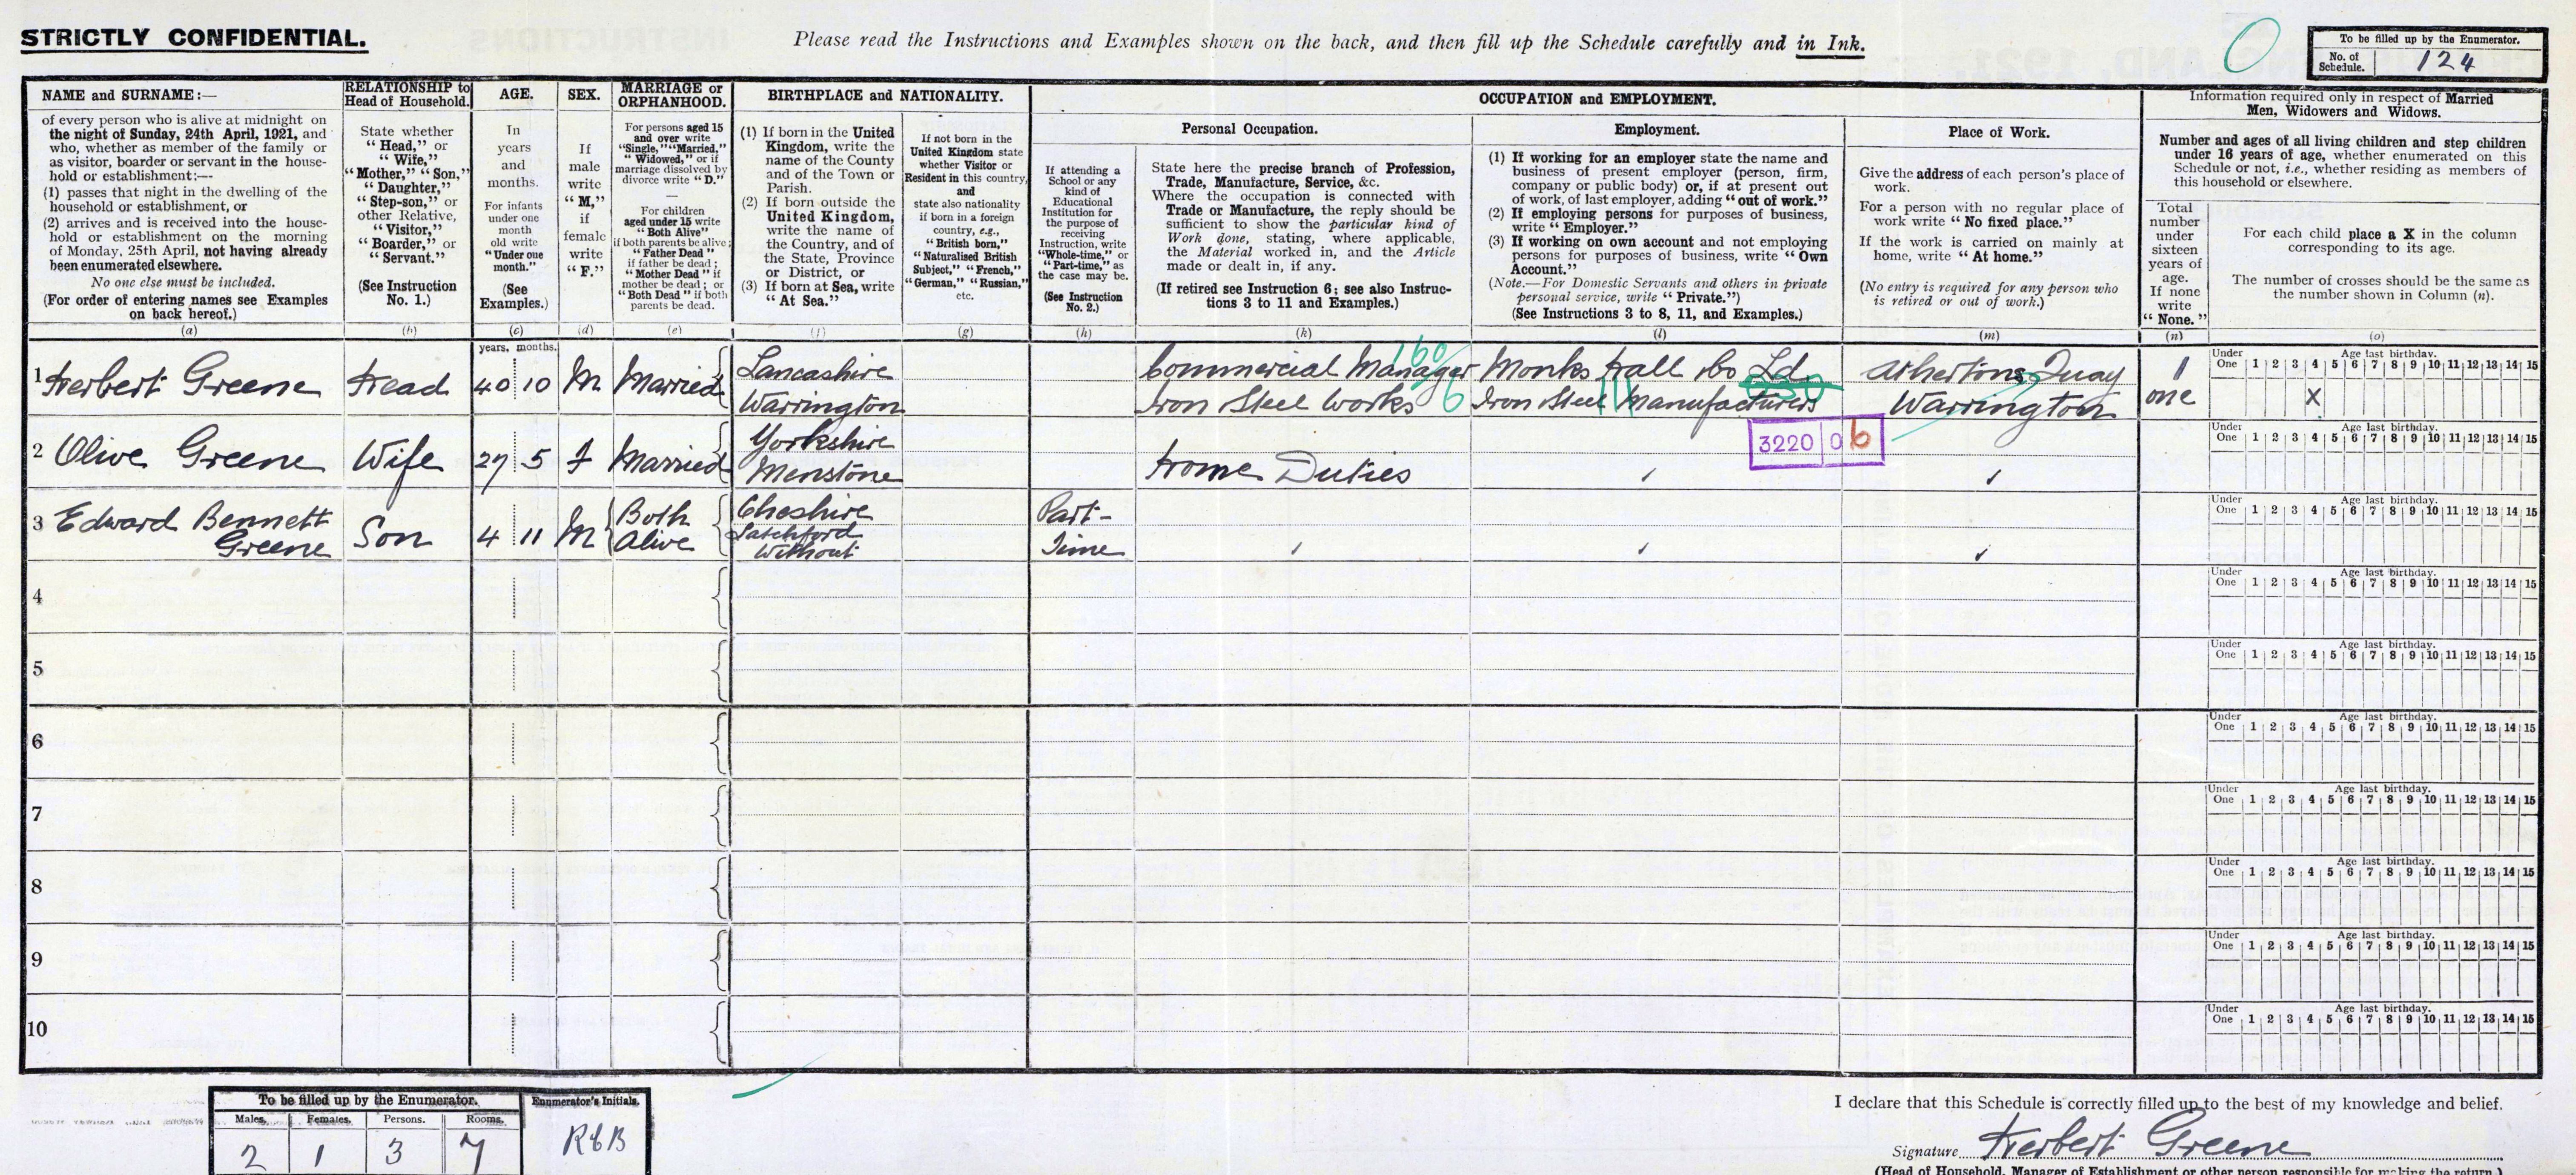 STRICTLY CONFIDENTIAL.
Please read the Instructions and Examples shown on the back, and then fill up the Schedule carefully and in Ink.
To be filled up by the Enumerator.
No. of Schedule. 124
NAME and SURNAME:—
of every person who is alive at midnight on
the night of Sunday, 24th April, 1921, and
who, whether as member of the family or
as visitor, boarder or servant in the house-
hold or establishment:—
(1) passes that night in the dwelling of the
household or establishment, or
(2) arrives and is received into the house-
hold or establishment on the morning
of Monday, 25th April, not having already
been enumerated elsewhere.
No one else must be included.
(For order of entering names see Examples
on back hereof.)
(a)
RELATIONSHIP to
Head of Household.
State whether
"Head," or
"Wife,"
"Mother," "Son,"
"Daughter,"
"Step-son," or
other Relative,
"Visitor,"
"Boarder," or
"Servant."
(See Instruction
No. 1.)
(b)
AGE.
In
years
and
months.
For infants
under one
month
old write
"Under one
month."
(See
Examples.)
(c)
SEX.
If
male
write
"M,"
if
female
write
"F."
(d)
MARRIAGE or
ORPHANHOOD.
For persons aged 15
and over write
"Single," "Married,"
"Widowed," or if
marriage dissolved by
divorce write "D."
—
For children
aged under 15 write
"Both Alive"
if both parents be alive;
"Father Dead"
if father be dead;
"Mother Dead" if
mother be dead; or
"Both Dead" if both
parents be dead.
(e)
BIRTHPLACE and NATIONALITY.
(1) If born in the United
Kingdom, write the
name of the County
and of the Town or
Parish.
(2) If born outside the
United Kingdom,
write the name of
the Country, and of
the State, Province
or District, or
(3) If born at Sea, write
"At Sea."
(f)
If not born in the
United Kingdom state
whether Visitor or
Resident in this country,
and
state also nationality
if born in a foreign
country, e.g.,
"British born,"
"Naturalised British
Subject," "French,"
"German," "Russian,"
etc.
(g)
OCCUPATION and EMPLOYMENT.
If attending a
School or any
kind of
Educational
Institution for
the purpose of
receiving
Instruction, write
"Whole-time," or
"Part-time," as
the case may be.
(See Instruction
No. 2.)
(h)
Personal Occupation.
State here the precise branch of Profession,
Trade, Manufacture, Service, &c.
Where the occupation is connected with
Trade or Manufacture, the reply should be
sufficient to show the particular kind of
Work done, stating, where applicable,
the Material worked in, and the Article
made or dealt in, if any.
(If retired see Instruction 6; see also Instruc-
tions 3 to 11 and Examples.)
(k)
Employment.
(1) If working for an employer state the name and
business of present employer (person, firm,
company or public body) or, if at present out
of work, of last employer, adding "out of work."
(2) If employing persons for purposes of business,
write "Employer."
(3) If working on own account and not employing
persons for purposes of business, write "Own
Account."
(Note.—For Domestic Servants and others in private
personal service, write "Private.")
(See Instructions 3 to 8, 11, and Examples.)
(l)
Place of Work.
Give the address of each person's place of
work.
For a person with no regular place of
work write "No fixed place."
If the work is carried on mainly at
home, write "At home."
(No entry is required for any person who
is retired or out of work.)
(m)
Information required only in respect of Married
Men, Widowers and Widows.
Number and ages of all living children and step children
under 16 years of age, whether enumerated on this
Schedule or not, i.e., whether residing as members of
this household or elsewhere.
Total
number
under
sixteen
years of
age.
If none
write
"None."
(n)
For each child place a X in the column
corresponding to its age.
The number of crosses should be the same as
the number shown in Column (n).
(o)
years. months.
1 Herbert Greene Head 40 10 M Married Lancashire Warrington
Commercial Manager Iron Steel Works
160
6
Monks Hall & Co Ld Iron Steel Manufacturers
Athertons Quay Warrington
1 one
Under One Age last birthday. 1 2 3 4 5 6 7 8 9 10 11 12 13 14 15
X
2 Olive Greene Wife 27 5 F Married Yorkshire Menstone
Home Duties
3220 0 6
Under One Age last birthday. 1 2 3 4 5 6 7 8 9 10 11 12 13 14 15
3 Edward Bennett Greene Son 4 11 M Both Alive Cheshire Latchford Without
Part-Time
Under One Age last birthday. 1 2 3 4 5 6 7 8 9 10 11 12 13 14 15
4
Under One Age last birthday. 1 2 3 4 5 6 7 8 9 10 11 12 13 14 15
5
Under One Age last birthday. 1 2 3 4 5 6 7 8 9 10 11 12 13 14 15
6
Under One Age last birthday. 1 2 3 4 5 6 7 8 9 10 11 12 13 14 15
7
Under One Age last birthday. 1 2 3 4 5 6 7 8 9 10 11 12 13 14 15
8
Under One Age last birthday. 1 2 3 4 5 6 7 8 9 10 11 12 13 14 15
9
Under One Age last birthday. 1 2 3 4 5 6 7 8 9 10 11 12 13 14 15
10
Under One Age last birthday. 1 2 3 4 5 6 7 8 9 10 11 12 13 14 15
To be filled up by the Enumerator.
Males. Females. Persons. Rooms.
2 1 3 7
Enumerator's Initials.
I declare that this Schedule is correctly filled up to the best of my knowledge and belief.
Signature Herbert Greene
(Head of Household, Manager of Establishment or other person responsible for making the return.)